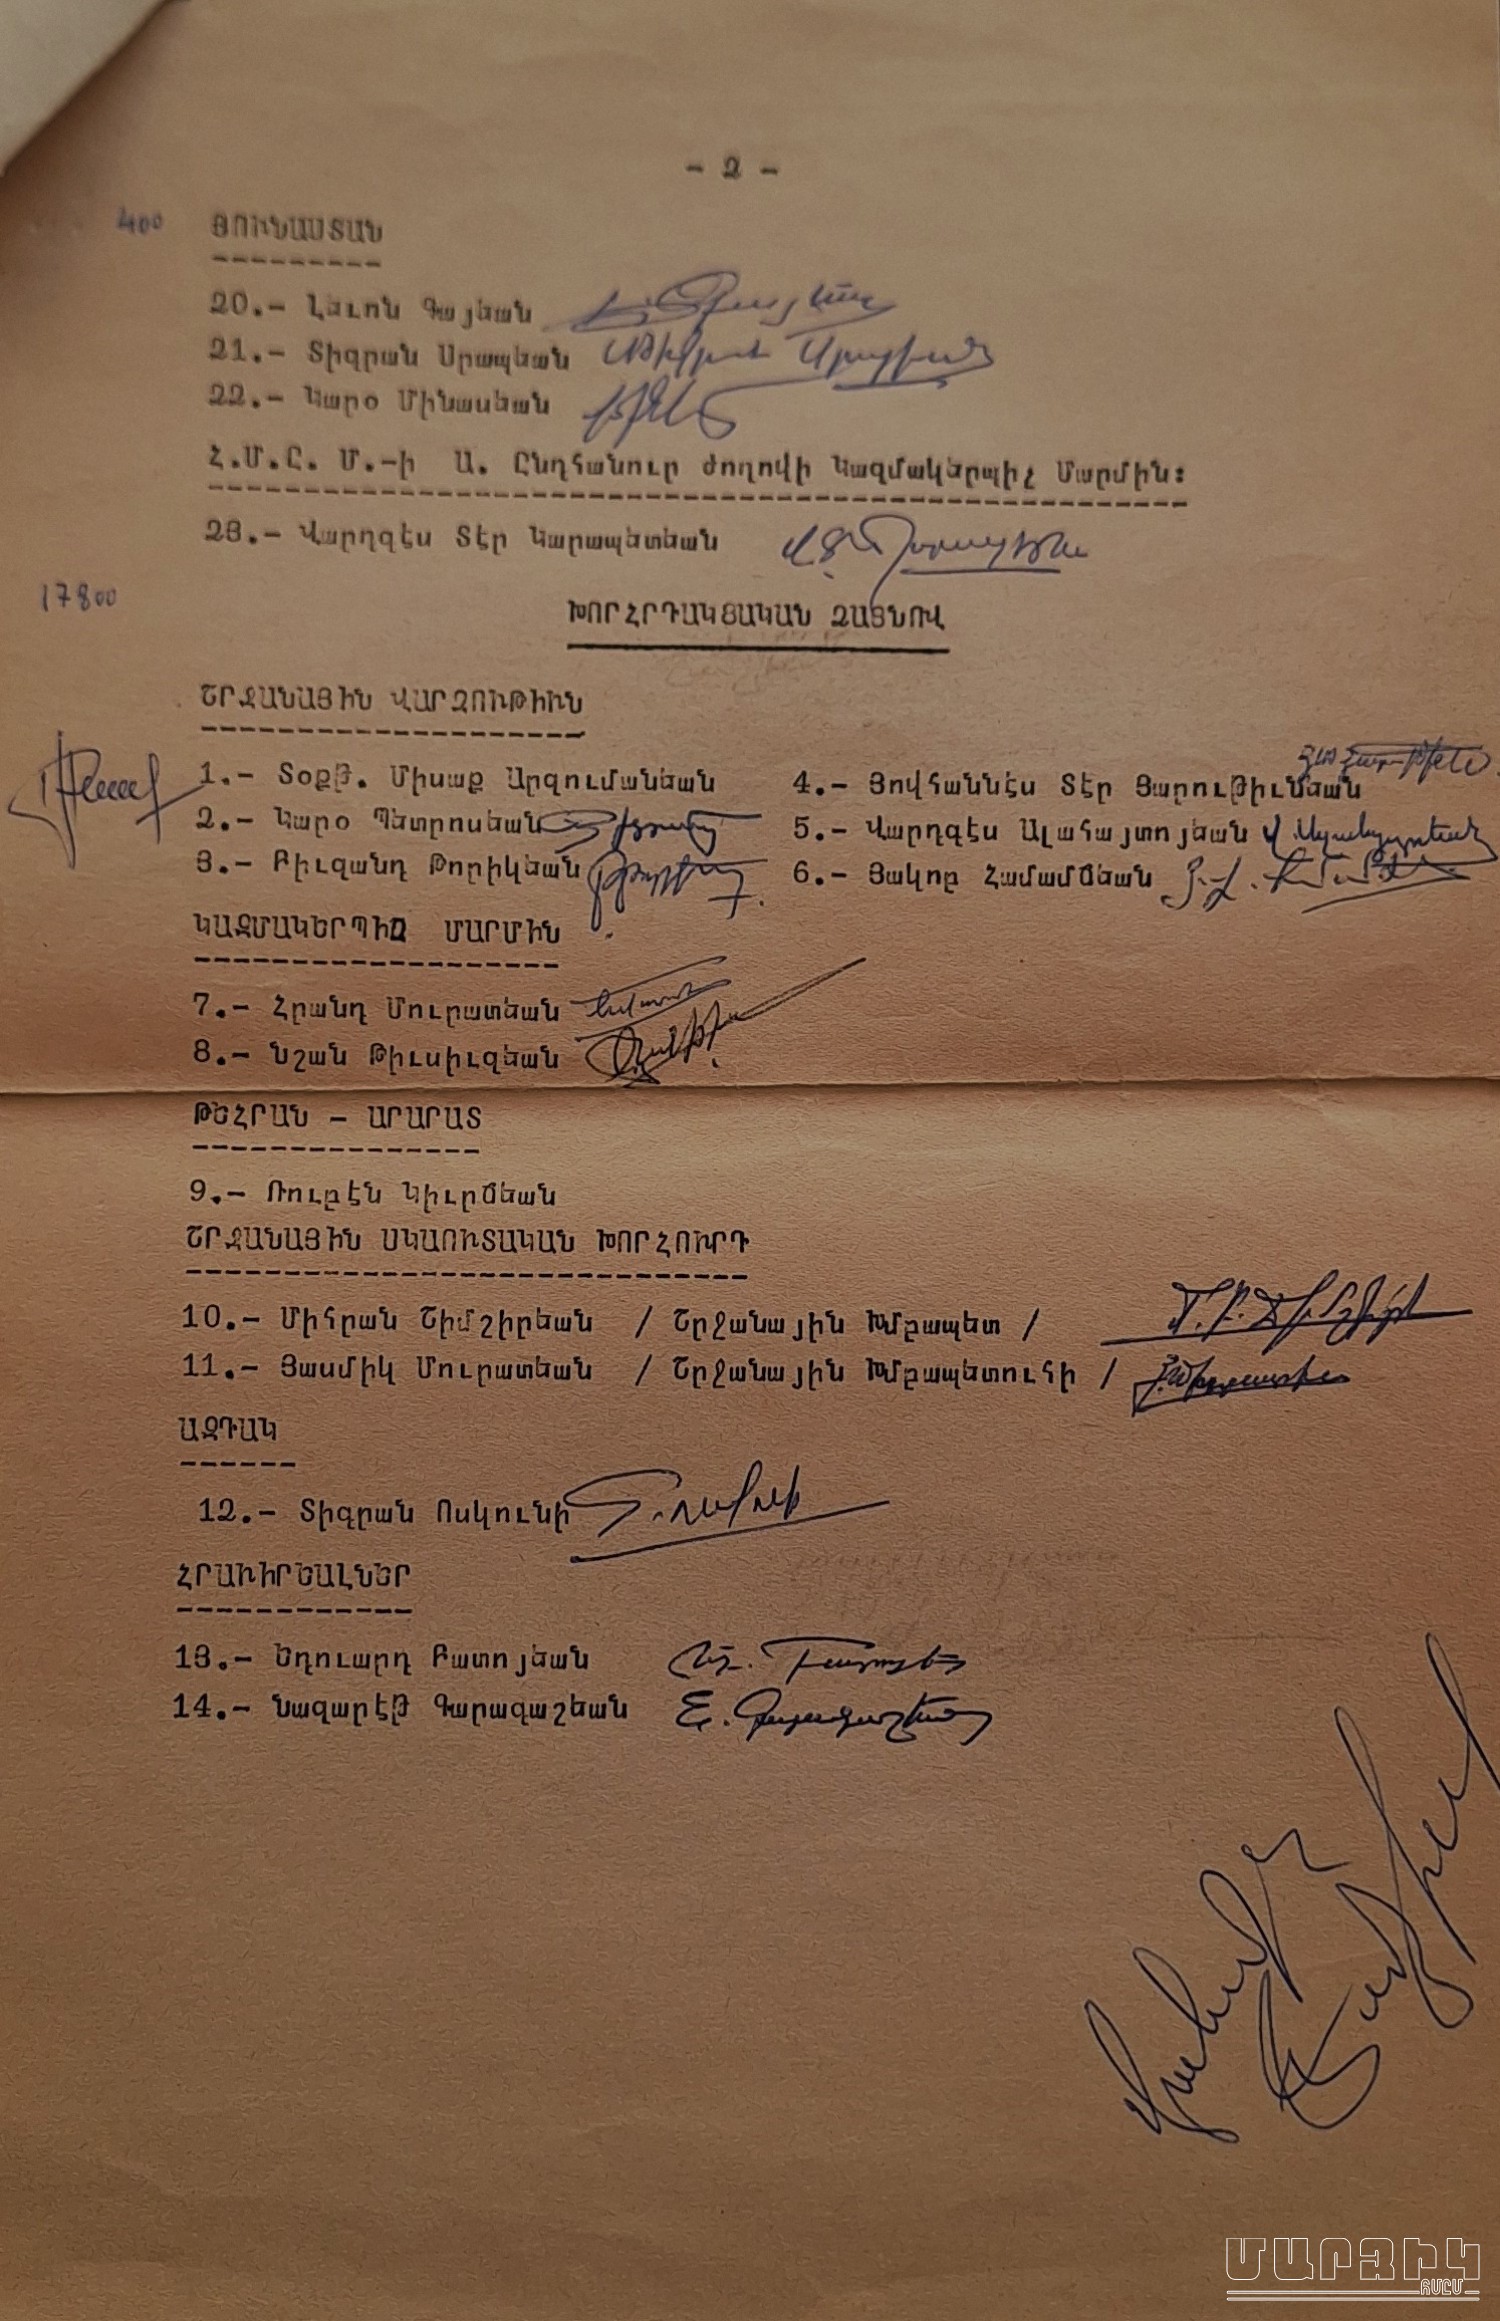 - 2 -
400 ՅՈՒՆԱՍՏԱՆ
20.- Լեւոն Գայեան
21.- Տիգրան Սրապեան
22.- Կարօ Մինասեան
Հ.Մ.Ը. Մ.-ի Ա. Ընդհանուր ժողովի Կազմակերպիչ Մարմին:
23.- Վարդգէս Տէր Կարապետեան
17800
ԽՈՐՀՐԴԱԿՑԱԿԱՆ ՁԱՅՆՈՎ
ՇՐՋԱՆԱՅԻՆ ՎԱՐՉՈՒԹԻՒՆ
1.- Տօքթ. Միսաք Արզումանեան
2.- Կարօ Պետրոսեան
3.- Բիւզանդ Թորիկեան
4.- Յովհաննէս Տէր Յարութիւնեան
5.- Վարդգէս Ալահայտոյեան
6.- Յակոբ Համամճեան
ԿԱԶՄԱԿԵՐՊԻՉ ՄԱՐՄԻՆ
7.- Հրանդ Մուրատեան
8.- Նշան Թիւսիւզեան
ԹԵՀՐԱՆ - ԱՐԱՐԱՏ
9.- Ռուբէն Կիւրճեան
ՇՐՋԱՆԱՅԻՆ ՍԿԱՈՒՏԱԿԱՆ ԽՈՐՀՈՒՐԴ
10.- Միհրան Շիմշիրեան / Շրջանային Խմբապետ /
11.- Յասմիկ Մուրատեան / Շրջանային Խմբապետուհի /
ԱԶԴԱԿ
12.- Տիգրան Ոսկունի
ՀՐԱՒԻՐԵԱԼՆԵՐ
13.- Եդուարդ Բատոյեան
14.- Նազարէթ Գարագաշեան
ՄԱՐԶԻԿ
ՀՄԸՄ